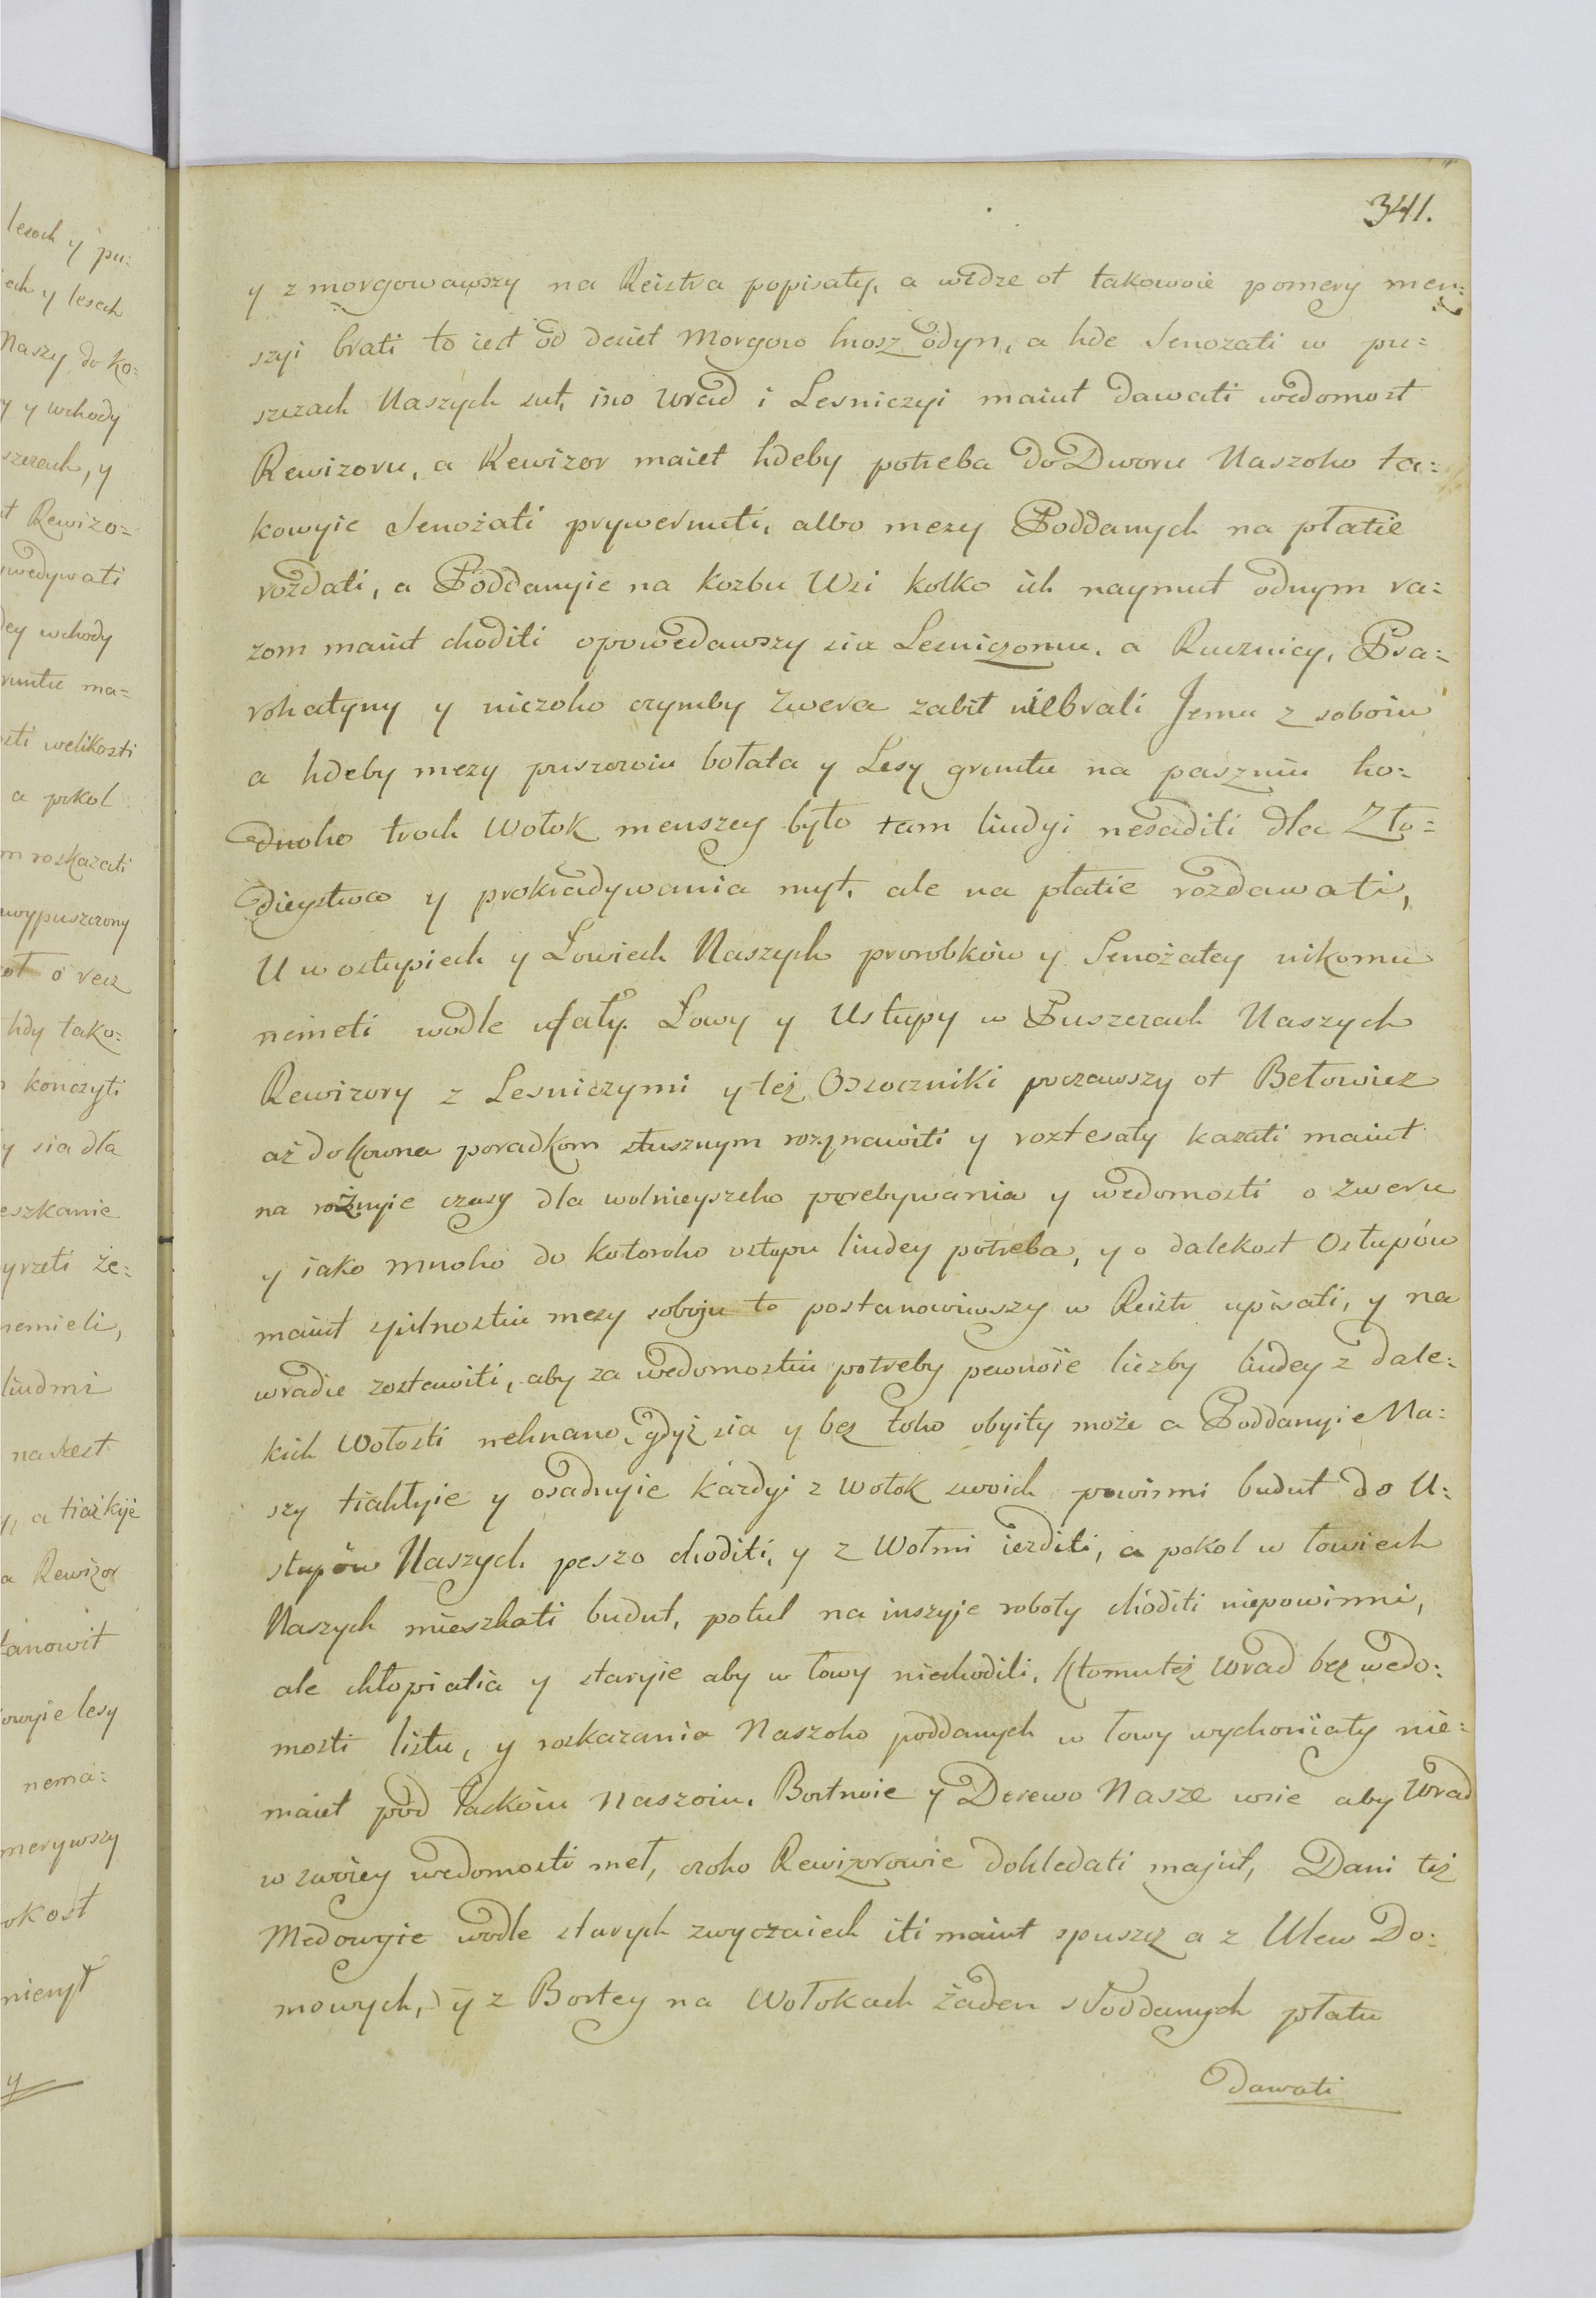 341.
y zmorgowawszy na Reistra popisaty, a wedze ot takowoie pomery men:
szyi brati to iest od desiet Morgow hrosz odyn, a hde Senozati w pu:
szczach Naszych sut, ino Wrad i Lesniczyi maiut dawati wedomost
Rewizoru, a Rewizor maiet hdeby potreba do Dworu Naszoho ta:
kowyie Senożati prywernuti, albo mezy Poddanych na płatie
rozdati, a Poddanyie na kozbu Wsi kolko ich naymut odnym ra:
zom maiut choditi opowedawszy sia Lesniczomu, a Rucznicy, Psa:
rohatyny y niczoho czymby Zwera zabit niebrali Jemu z soboiu
a hdeby mezy puszczoiu bołata y Lesy gruntu na paszniu ho:
dnoho troch Wołok menszey było tam liudyi nesaditi dla Zło:
dieystwa y prokradywania myt, ale na płatie rozdawati,
U w ostupiech y Lowiech Naszych prorobków y Senożatey nikomu
neimeti wodle ufały. Łowy y Ustupy w Puszczach Naszych
Rewizory z Lesniczymi y też Osoczniki poczawszy ot Bełowiez
aż do Kowna poradkom słusznym rozprawiti y roztesaty kazati maiut
na rożnyie czasy dla wolnieyszeho perebywania y wedomosti o zweru
y iako mnoho do kotoroho ostupu liudey potreba, y o dalekost Ostupów
maiut spilnostiu mezy soboju to postanowiwszy w Reistr upisati, y na
wradie zostawiti, aby za wedomostiu potreby pewnoie liczby liudey z dale:
kich Wołosti nehnano, gdyż sia y bez toho obyity może a Poddanyie Na:
szy tiahłyie y osadnyie każdyi z wołok swoich powinni budut do U:
stupów Naszych peszo choditi, y z Wołmi iezditi, a pokol w łowiech
Naszych mieszkati budut, potul na inszyie roboty choditi niepowinni,
ale chłopiatia y staryie aby w łowy niechodili, Ktomuteż Wrad bez wedo:
mosti listu, y roskazania Naszoho poddanych w łowy wychoniaty nie:
maiet pod łaskoiu Naszoiu, Bortnoie y Derewo Nasze wsie aby Wrad
w swoiey wedomosti met, czoho Rewizorowie dohledati majut, Dani też
Medowyie wodle starych zwyczaiech iti maiut spuszcz a z Ulew Do:
mowych, y z Bortey na Wołokach żaden s Poddanych płatu
dawati